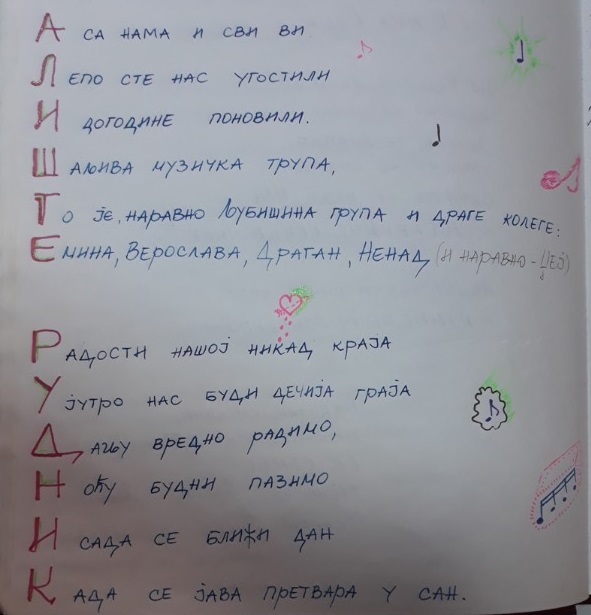 А СА НАМА И СВИ ВИ
ЛЕПО СТЕ НАС УГОСТИЛИ
И ДОГОДИНЕ ПОНОВИЛИ.
ШАЉИВА МУЗИЧКА ТРУПА,
ТО ЈЕ, НАРАВНО ЉУБИШИНА ГРУПА И ДРАГЕ КОЛЕГЕ:
ЕМИНА, ВЕРОСЛАВА, ДРАГАН, НЕНАД (И НАРАВНО - ЏЕЈ)
РАДОСТИ НАШОЈ НИКАД КРАЈА
УЈУТРО НАС БУДИ ДЕЧИЈА ГРАЈА
ДАЊУ ВРЕДНО РАДИМО,
НОЋУ БУДНИ ПАЗИМО
И САДА СЕ БЛИЖИ ДАН
КАДА СЕ ЈАВА ПРЕТВАРА У САН.